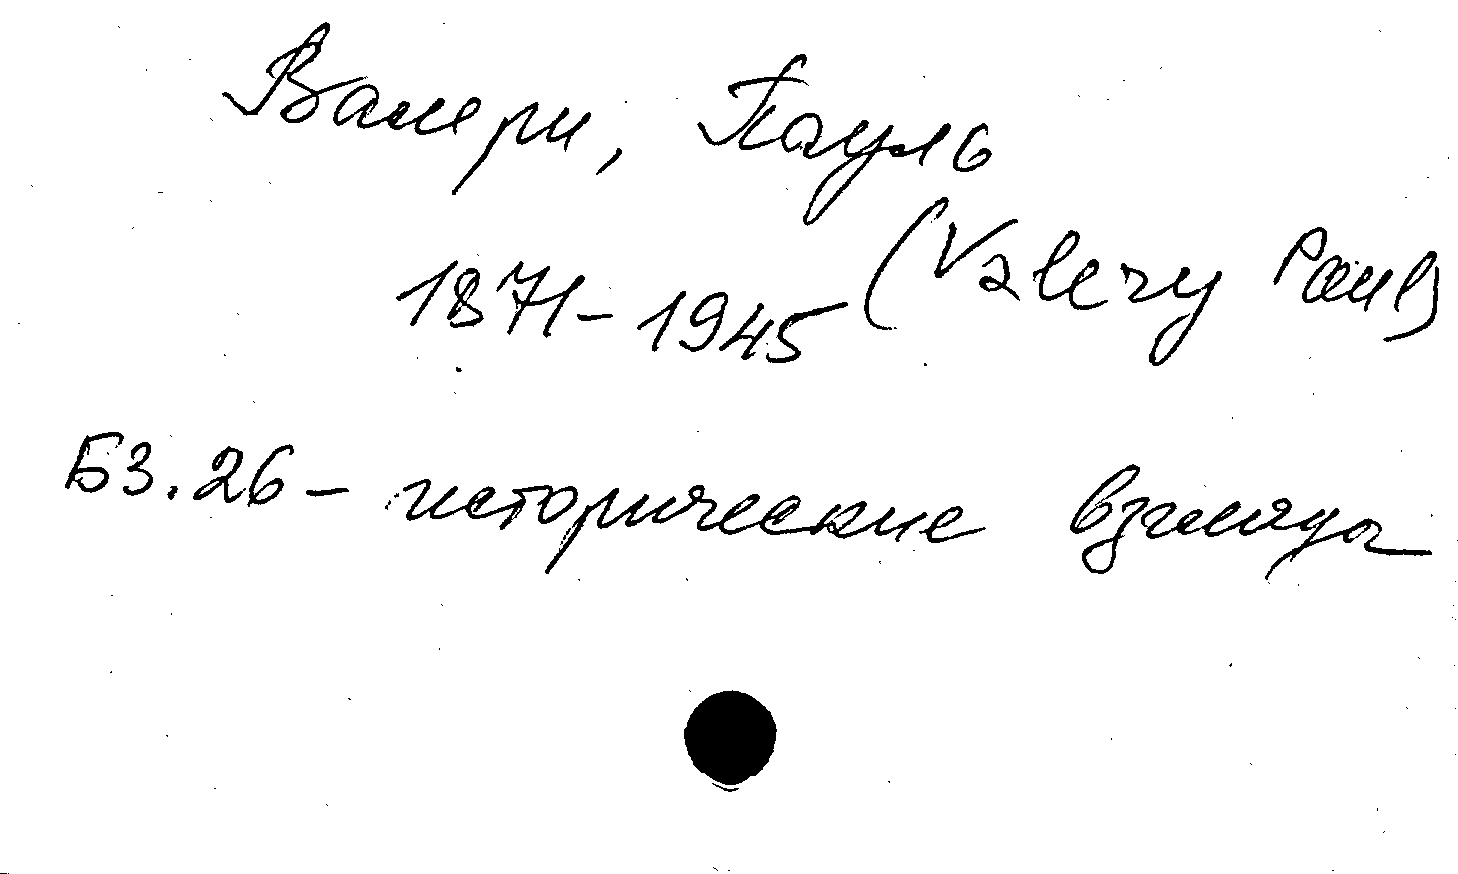 Валери, Пауль
(Valery Paul)
1871-1945
Б3.26- исторические взгляды